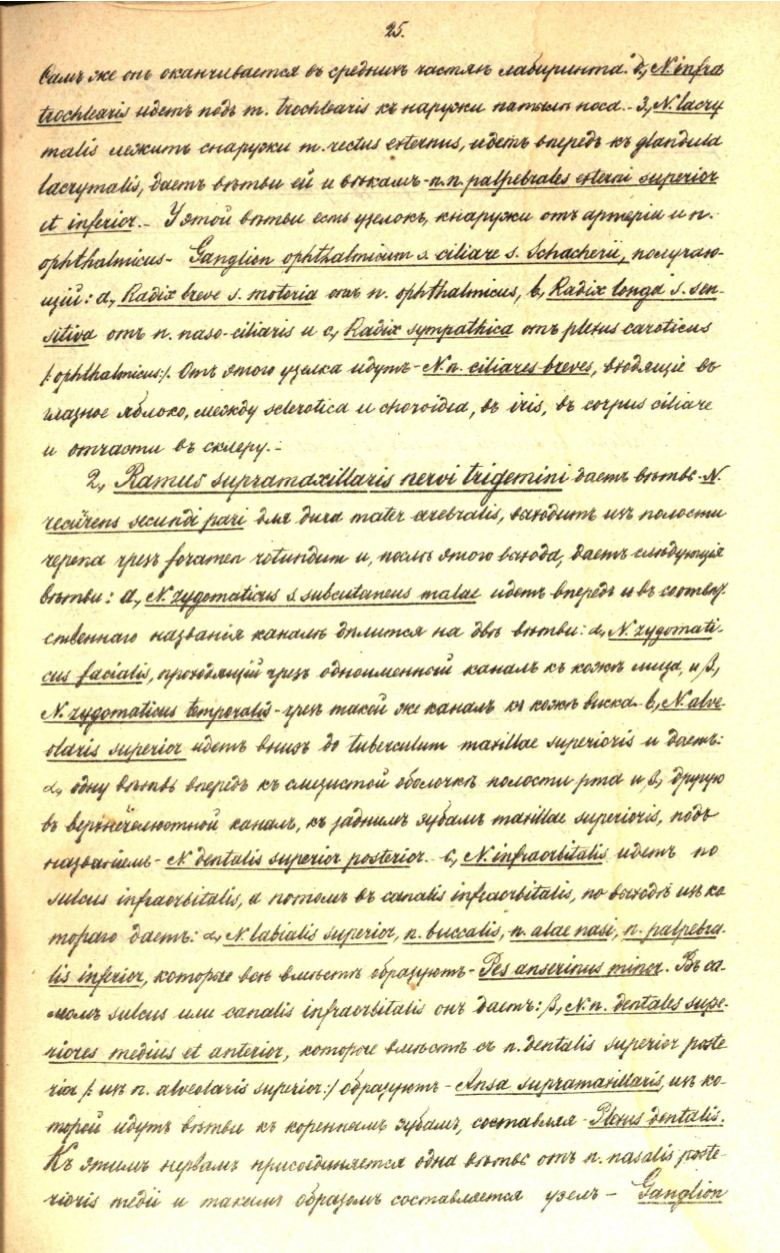 25.
Самъ же онъ оканчивается въ среднихъ частяхъ лабиринта. 2, N. infra
trochlearis идетъ подъ m. trochlearis къ наружи носа. - 3, N. lacry
malis лежитъ снаружи m. rectus externus, идетъ впередъ къ glandula
lacrymalis, даетъ вѣтви ей и вѣкамъ - n.n. palpebrales externi superior
et inferior. - У этой вѣтви есть узелокъ, кнаружи отъ артеріи и n.
ophthalmicus - Ganglion ophthalmicum s. ciliare s. Schacherii, получаю-
щій: a, Radix breve s. motoria отъ n. ophthalmicus, b, Radix longa s. sen-
sitiva отъ n. naso-ciliaris и c, Radix sympathica отъ plexus caroticus
/: ophthalmicus :/. Отъ этого узелка идутъ - N.n. ciliares breves, входящіе въ
глазное яблоко, между sclerotica и choroidea, въ iris, въ corpus ciliare
и отчасти въ склеру. -
2, Ramus supramaxillaris nervi trigemini даетъ вѣтвь - N.
recurens secundi pari для dura mater cerebralis, выходитъ изъ полости
черепа чрезъ foramen rotundum и, послѣ этого выхода, даетъ слѣдующія
вѣтви: a, N. zygomaticus s. subcutaneus malae идетъ впередъ и въ соотвѣт-
ственнаго названія каналѣ дѣлится на двѣ вѣтви: α, N. zygomati-
cus facialis, проходящій чрезъ одноименной каналъ къ кожѣ лица, и β,
N. zygomaticus temporalis - чрезъ такой же каналъ къ кожѣ виска. b, N. alve-
olaris superior идетъ внизъ до tuberculum maxillae superioris и даетъ:
α, одну вѣтвь впередъ къ слизистой оболочкѣ полости рта и β, другую
въ верхнечелюстной каналъ, къ заднимъ зубамъ maxillae superioris, подъ
названіемъ - N dentalis superior posterior. - c, N. infraorbitalis идетъ по
sulcus infraorbitalis, а потомъ въ canalis infraorbitalis, по выходѣ изъ ко
тораго даетъ: α, N labialis superior, n. buccalis, n. alae nasi, n. palpebra-
lis inferior, которые всѣ вмѣстѣ образуютъ - Pes anserinus minor. Въ са-
момъ sulcus или canalis infraorbitalis онъ даетъ: β, N.n. dentales supe-
riores medius et anterior, которые вмѣстѣ съ n. dentalis superior poste
rior /: изъ n. alveolaris superior :/ образуютъ - Ansa supramaxillaris, изъ ко-
торой идутъ вѣтви къ кореннымъ зубамъ, составляя - Plexus dentalis.
Къ этимъ нервамъ присоединяется одна вѣтвь отъ n. nasalis poste-
rioris medii и такимъ образомъ составляется узелъ - Ganglion